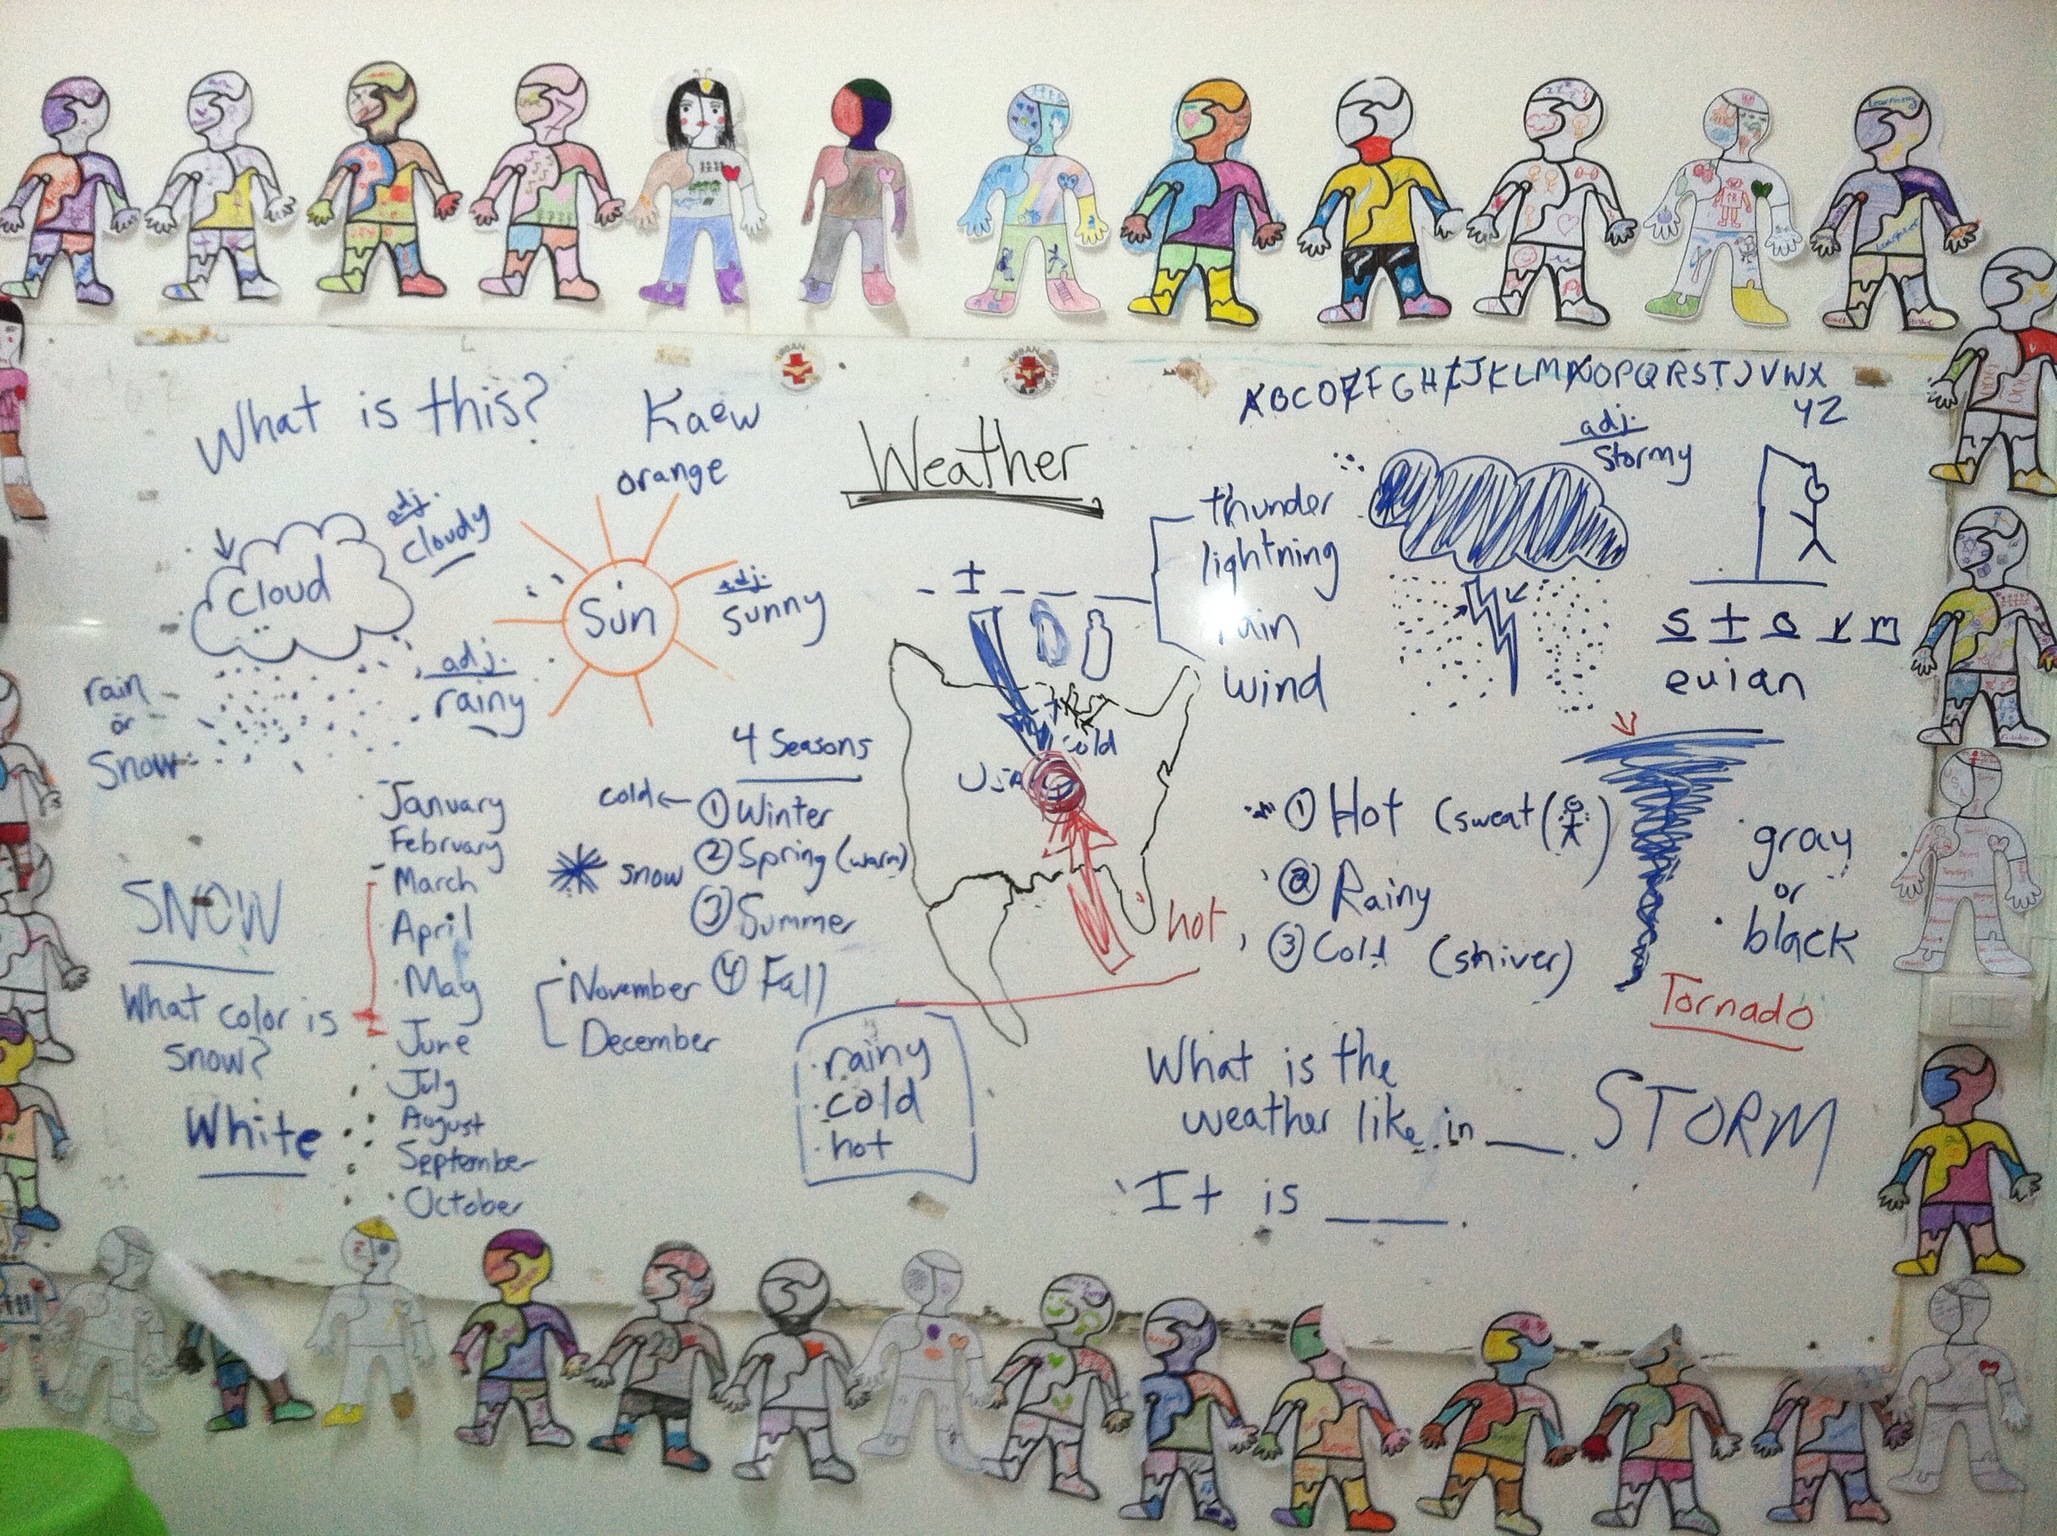 What is this?
Kaew
orange
Weather
ABCDEFGHIJKLMNOPQRSTUVWX
YZ
adj.
cloudy
Cloud
Sun
adj.
sunny
adj.
rainy
rain
or
snow
thunder
lightning
rain
wind
adj.
stormy
s t o r m
evian
4 Seasons
cold ← ① Winter
② Spring (warm)
snow
③ Summer
④ Fall
January
February
March
April
May
June
July
August
September
October
November
December
SNOW
What color is
snow?
White
USA
cold
hot
rainy
cold
hot
① Hot (sweat)
② Rainy
③ Cold (shiver)
gray
or
black
Tornado
What is the
weather like in ___.
It is ___ ___.
STORM